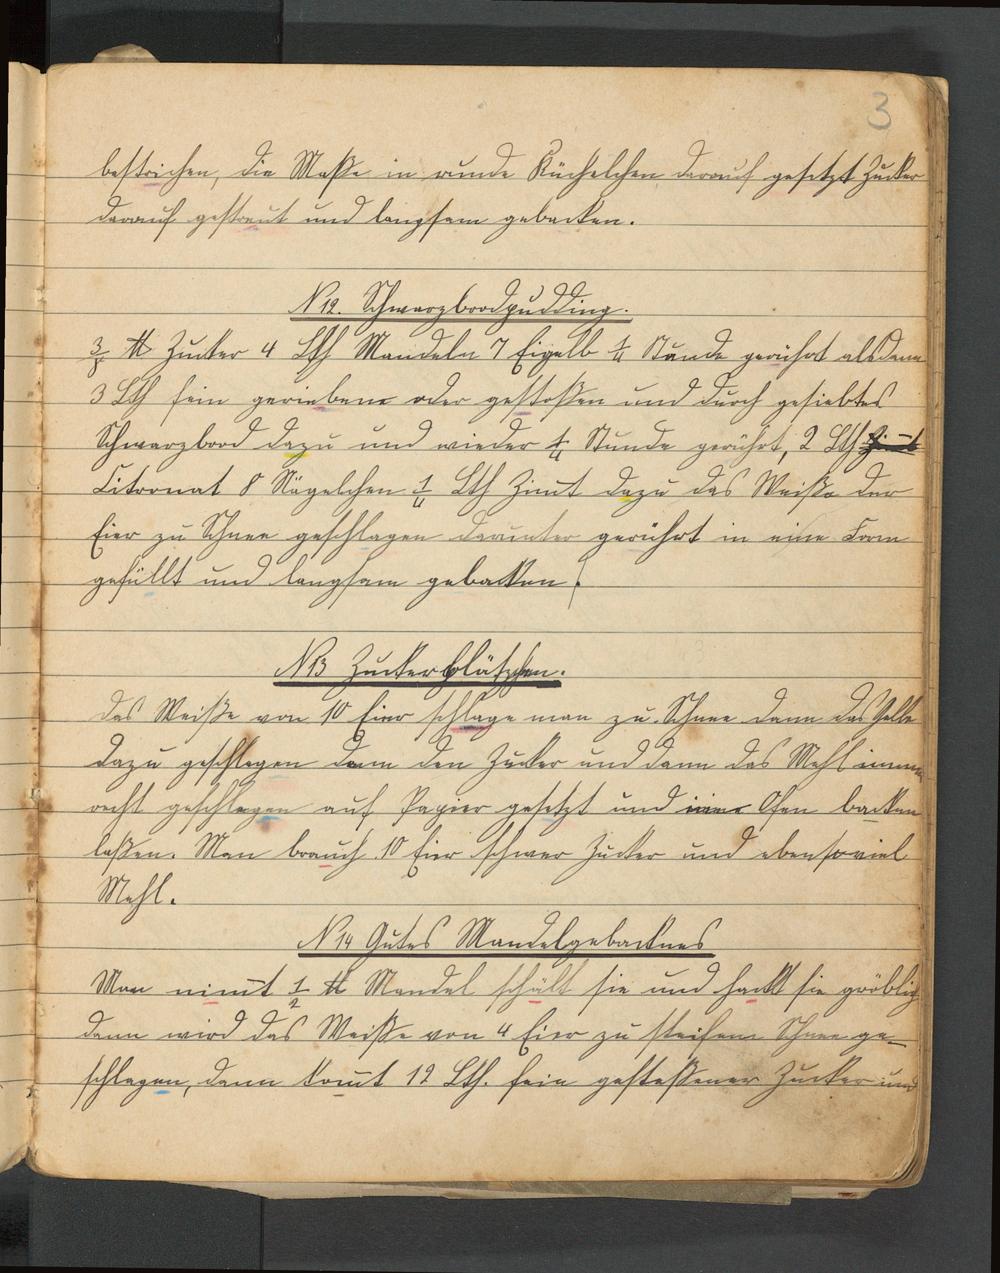 3
bestrichen, die Maße in runde Küchelchen darauf gesetzt Zucker
darauf gestreut und langsam gebacken.
N 12. Schwarzbrodpudding.
3/8 ℔ Zucker 4 Lth Mandeln 7 Eigelb 1/4 Stunde gerührt alsdann
3 Lth fein gerieben oder gestoßen und durch gesiebtes
Schwarzbrod dazu und wieder 1/4 Stunde gerührt, 2 Lth Zimt
Citronat 8 Nägelchen 1/4 Lth Zimt dazu das Weiße der
Eier zu Schnee geschlagen darunter gerührt in eine Form
gefüllt und langsam gebacken.
N 13 Zuckerplätzchen.
das Weiße von 10 Eier schlage man zu Schnee dann das Gelbe
dazu geschlagen dann den Zucker und dann das Mehl immer
recht geschlagen auf Papier gesetzt und Ofen backen
laßen. Man brauch 10 Eier schwer Zucker und ebensoviel
Mehl.
N 14 Gutes Mandelgebacknes
Man nimt 1/2 ℔ Mandel schält sie und hackt sie gröblig
dann wird das Weiße von 4 Eier zu steifem Schnee ge-
schlagen, dann komt 12 Lth. fein gestoßener Zucker und